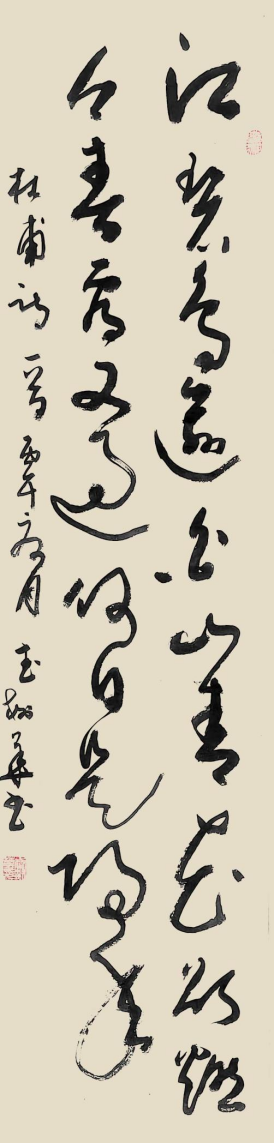 江碧鳥逾白山青花欲燃
今春看又過何日是歸年
杜甫詩一首丙午月華書